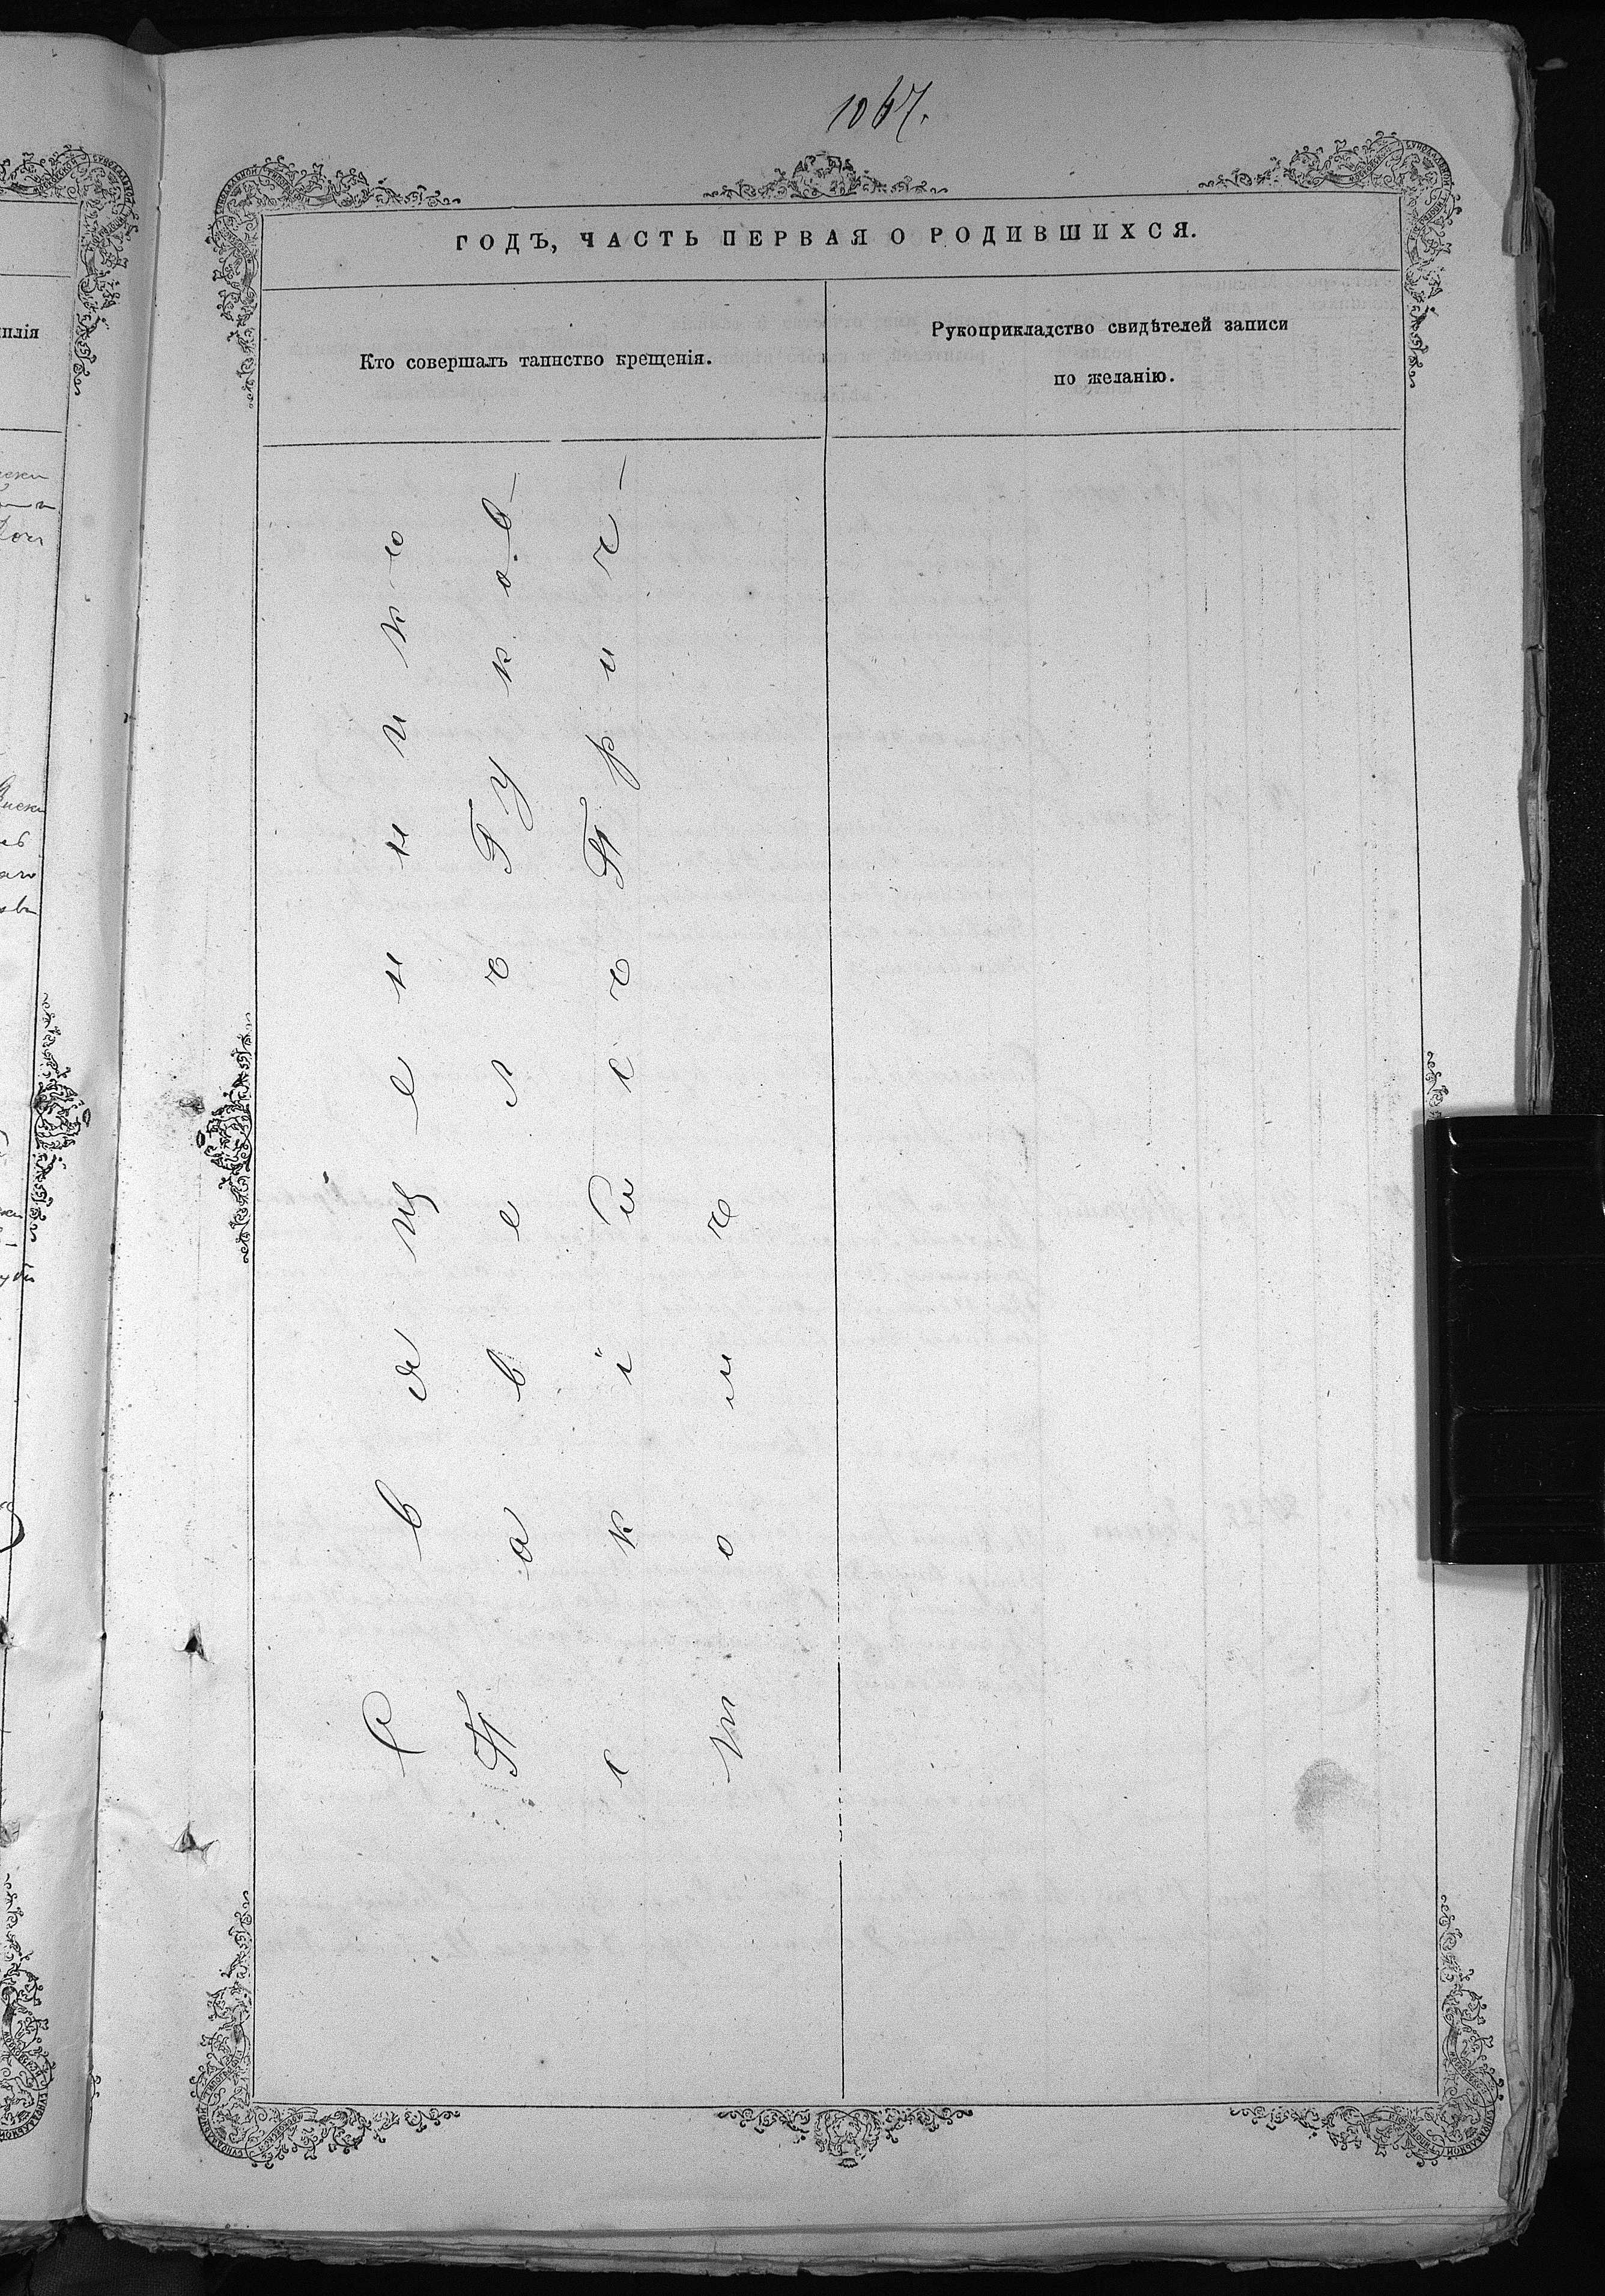 1067.
ГОДЪ, ЧАСТЬ ПЕРВАЯ О РОДИВШИХСЯ.
Кто совершалъ таинство крещенія.
Рукоприкладство свидѣтелей записи
по желанію.
Священникъ
Павелъ Гуков-
скій съ Прич-
томъ